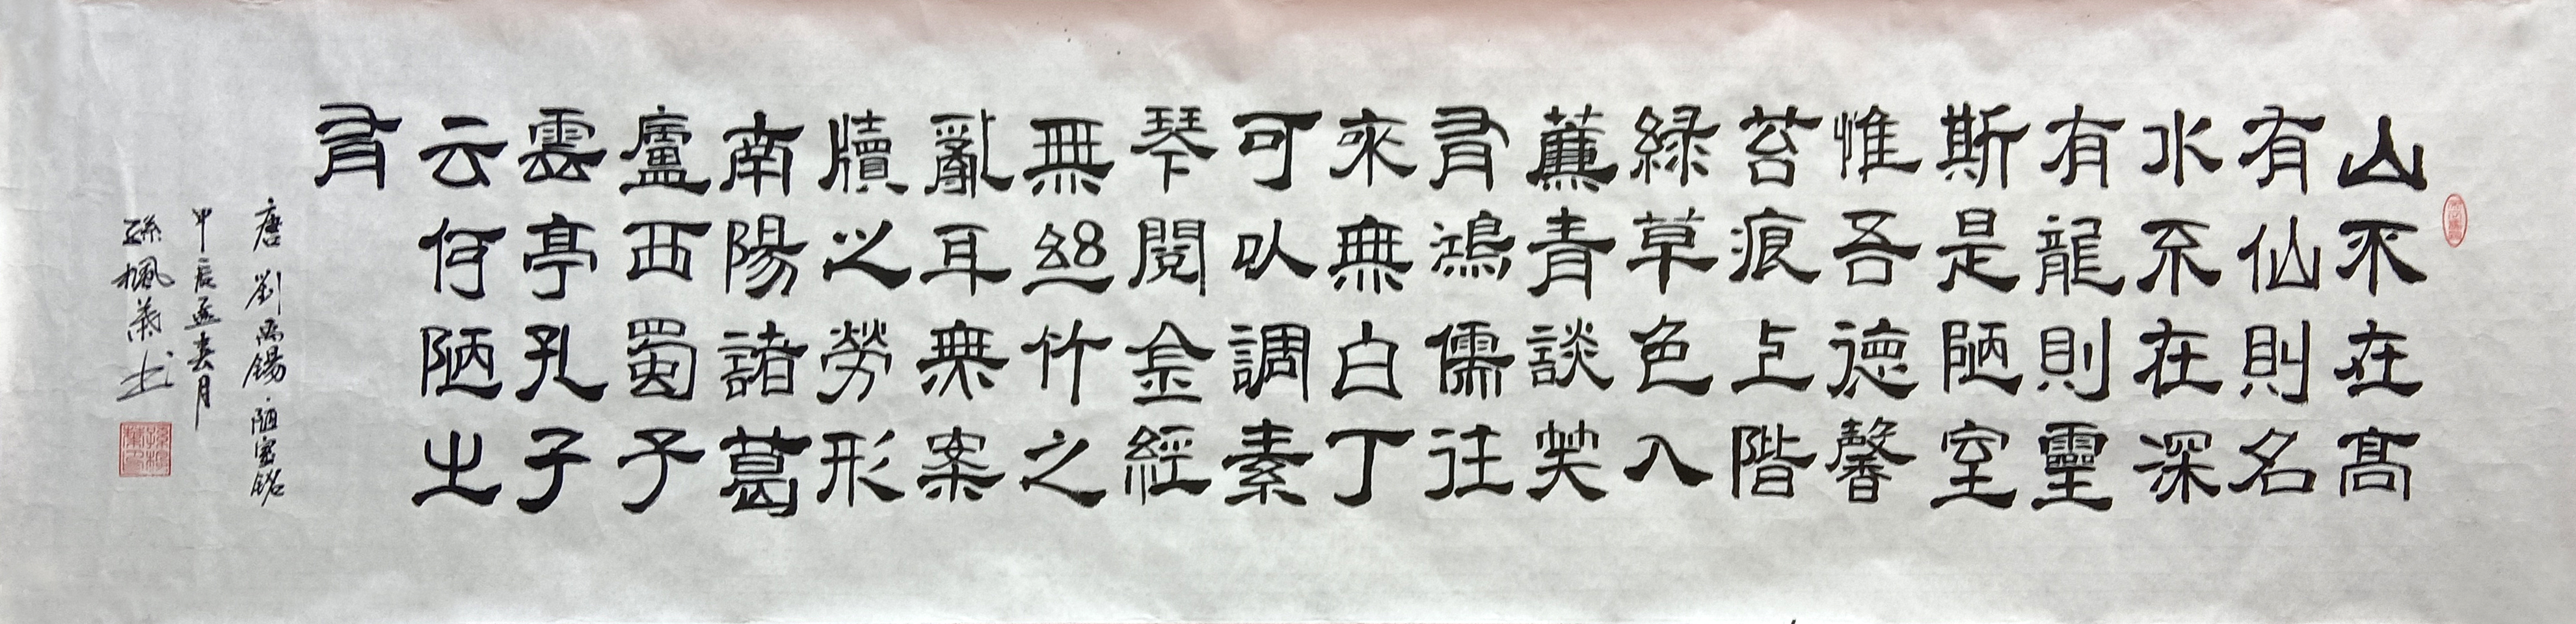 山不在高
有仙則名
水不在深
有龍則靈
斯是陋室
惟吾德馨
苔痕上階
綠草色入
簾青談笑
有鴻儒往
來無白丁
可以調素
琴閱金經
無絲竹之
亂耳無案
牘以勞形
南陽諸葛
廬西蜀子
雲亭孔子
云何陋之
有
唐劉禹錫陋室銘
甲辰孟春月
孫楓葉书